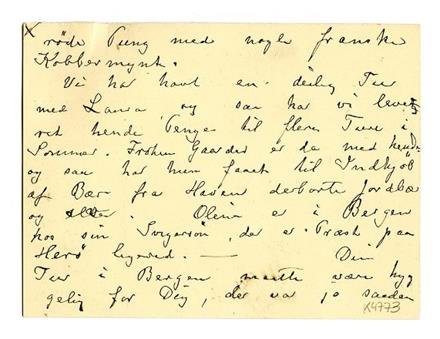 x
røde Pung med nogle franske
Kobbermynt.
Vi har havt en deilig Tur
med Laura, og saa har vi lovet
hende Penge til flere Ture i
Sommer. Frøken Gaarder er da med hende
og saa har hun faaet til Indkjøb
af Bær fra Haven derborte Jordbær
og. Olava er i Bergen
hos sin Svigersøn, der er Præst paa
Herø. — Din
Tur i Bergen maatte være hyg
gelig for Dig, der var jo saadan
K4773